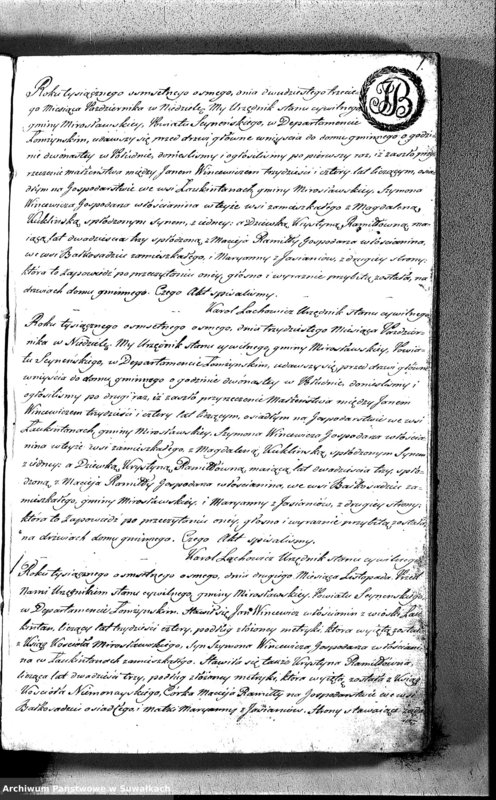 1
JB
Roku tysiącznego osmsetnego osmego, dnia dwudziestego trzecie-
go Miesiąca Października w Niedzielę. My Urzędnik stanu cywilnego
gminy Mirosławskiey, Powiatu Seyneńskiego, w Departamencie
Łomżyńskim, udawszy się przed drzwi główne wniyścia do domu gminnego o godzi-
nie dwunastey w Południe, donieśliśmy i ogłosiliśmy po pierwszy raz, iż zaszło przy-
rzeczenie małżeństwa między Janem Wincewiczem trzydzieści i cztery lat liczącym, osia-
dłym na Gospodarstwie we wsi Łaukintanach gminy Mirosławskiey, Szymona
Wincewicza Gospodarza włościanina w teyże wsi zamieszkałego z Magdaleną
Kuklinską spłodzonym Synem, z iedney: a Dziewką Krystyną Ramiłłowną, ma-
iącą lat dwadzieścia trzy spłodzoną z Macieja Ramiłły Gospodarza włościanina,
we wsi Bałkosadzie zamieszkałego, i Maryanny z Jasianiów, z drugiey strony.
która to zapowiedź po przeczytaniu oney, głośno i wyraźnie przybitą została, na
drzwiach domu gminnego. Czego Akt spisaliśmy.
Karol Lachowicz Urzędnik stanu cywilnego
Roku tysiącznego osmsetnego osmego, dnia trzydziestego Miesiąca Paździer-
nika w Niedzielę. My Urzędnik Stanu cywilnego gminy Mirosławskiey, Powia-
tu Seyneńskiego, w Departamencie Łomżyńskim, udawszy się przed drzwi główne
wniyścia do domu gminnego o godzinie dwunastey w Południe, donieśliśmy i
ogłosiliśmy po drugi raz, iż zaszło przyrzeczenie Małżeństwa między Janem
Wincewiczem trzydzieści i cztery lat liczącym, osiadłym na Gospodarstwie we wsi
Łaukintanach, gminy Mirosławskiey, Szymona Wincewicza Gospodarza włościa-
nina w teyże wsi zamieszkałego, z Magdaleną Kuklinską, spłodzonym Synem
z iedney: a Dziewką Krystyną Ramiłłowną, maiącą lat dwadzieścia trzy, spło-
dzoną, z Macieja Ramiłły Gospodarza włościanina, we wsi Bałkosadzie za-
mieszkałego, gminy Mirosławskiey: i Maryanny z Jasianiów, z drugiey strony.
która to Zapowiedź po przeczytaniu oney, głośno i wyraźnie przybitą została
na drzwiach domu gminnego. Czego Akt spisaliśmy.
Karol Lachowicz Urzędnik stanu cywilnego
Roku tysiącznego osmsetnego osmego, dnia drugiego Miesiąca Listopada. Przed
Nami Urzędnikiem Stanu cywilnego, gminy Mirosławskiey, Powiatu Seyneńskiego,
w Departamencie Łomżyńskim. Stawił się Jan Wincewicz włościanin z wioski Łau-
kintan, liczący lat trzydzieści cztery, podług złożoney metryki, która wyięta została
z Xiąg Kościoła Mirosławskiego, Syn Szymona Wincewicza Gospodarza włościani-
na w Łaukintanach zamieszkałego. Stawiła się także Krystyna Ramiłłowna,
licząca lat dwadzieścia trzy, podług złożoney metryki, która wyięta została z Xiąg
Kościoła Niemonayskiego, Córka Macieja Ramiłły na Gospodarstwie we wsi
Bałkosadzie osiadłego i matki Maryanny z Jasianiów. Strony stawaiące
Archiwum Państwowe w Suwałkach